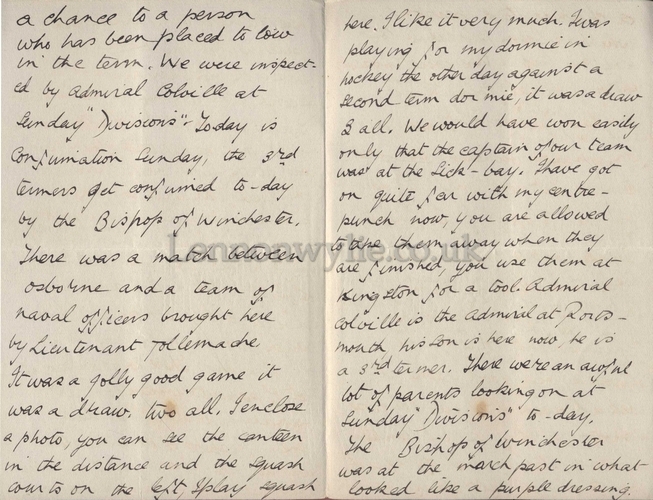 a chance to a person
who has been placed to low
in the term. We were inspect-
ed by Admiral Colville at
Sunday "Divisions". To-day is
Confirmation Sunday, the 3rd
termers get confirmed to-day
by the Bishop of Winchester.
There was a match between
Osborne and a team of
naval officers brought here
by Lieutenant Tollemache.
It was a golly good game it
was a draw. two all. I enclose
a photo, you can see the canteen
in the distance and the squash
courts on the left, I play squash
here. I like it very much. I was
playing for my dormie in
hockey the other day against a
second term dormie, it was a draw
3 all. We would have won easily
only that the captain of our team
was at the Sick-bay. I have got
on quite far with my centre-
punch now, you are allowed
to take them away when they
are finished, you use them at
Kingston for a tool. Admiral
Colville is the admiral at Ports-
mouth his son is here now, he is
a 3rd termer. There were an awful
lot of parents looking on at
Sunday "Divisions" to-day.
The Bishop of Winchester
was at the march past in what
looked like a purple dressing.
Lennonwylie.co.uk